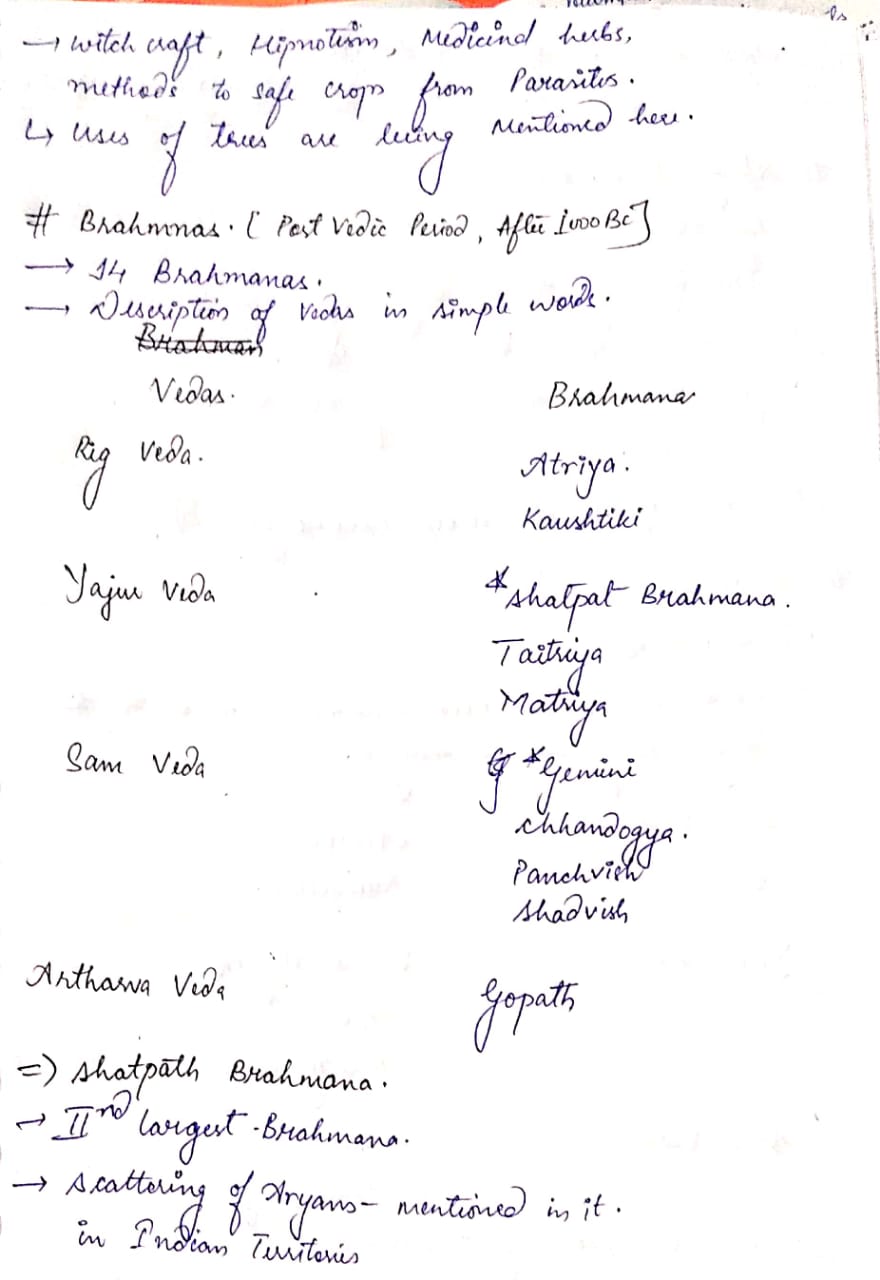 → witch craft, Hipnotism, Medicinal herbs,
methods to safe crops from Parasites.
↳ Uses of trees are being Mentioned here.
# Brahmnas. [Post Vedic Period, After 1000 BC]
→ 14 Brahmanas.
→ Description of vedas in simple words.
Brahman
Vedas. Brahmana
Rig Veda. Atriya.
Kaushtiki
Yajur Veda *Shatpat Brahmana.
Taitriya
Matriya
Sam Veda *Gemini
Chhandogya.
Panchvish
Shadvish
Artharva Veda Gopath
=) Shatpath Brahmana.
→ IInd largest Brahmana.
→ Scattering of Aryans - mentioned in it.
in Indian Territories